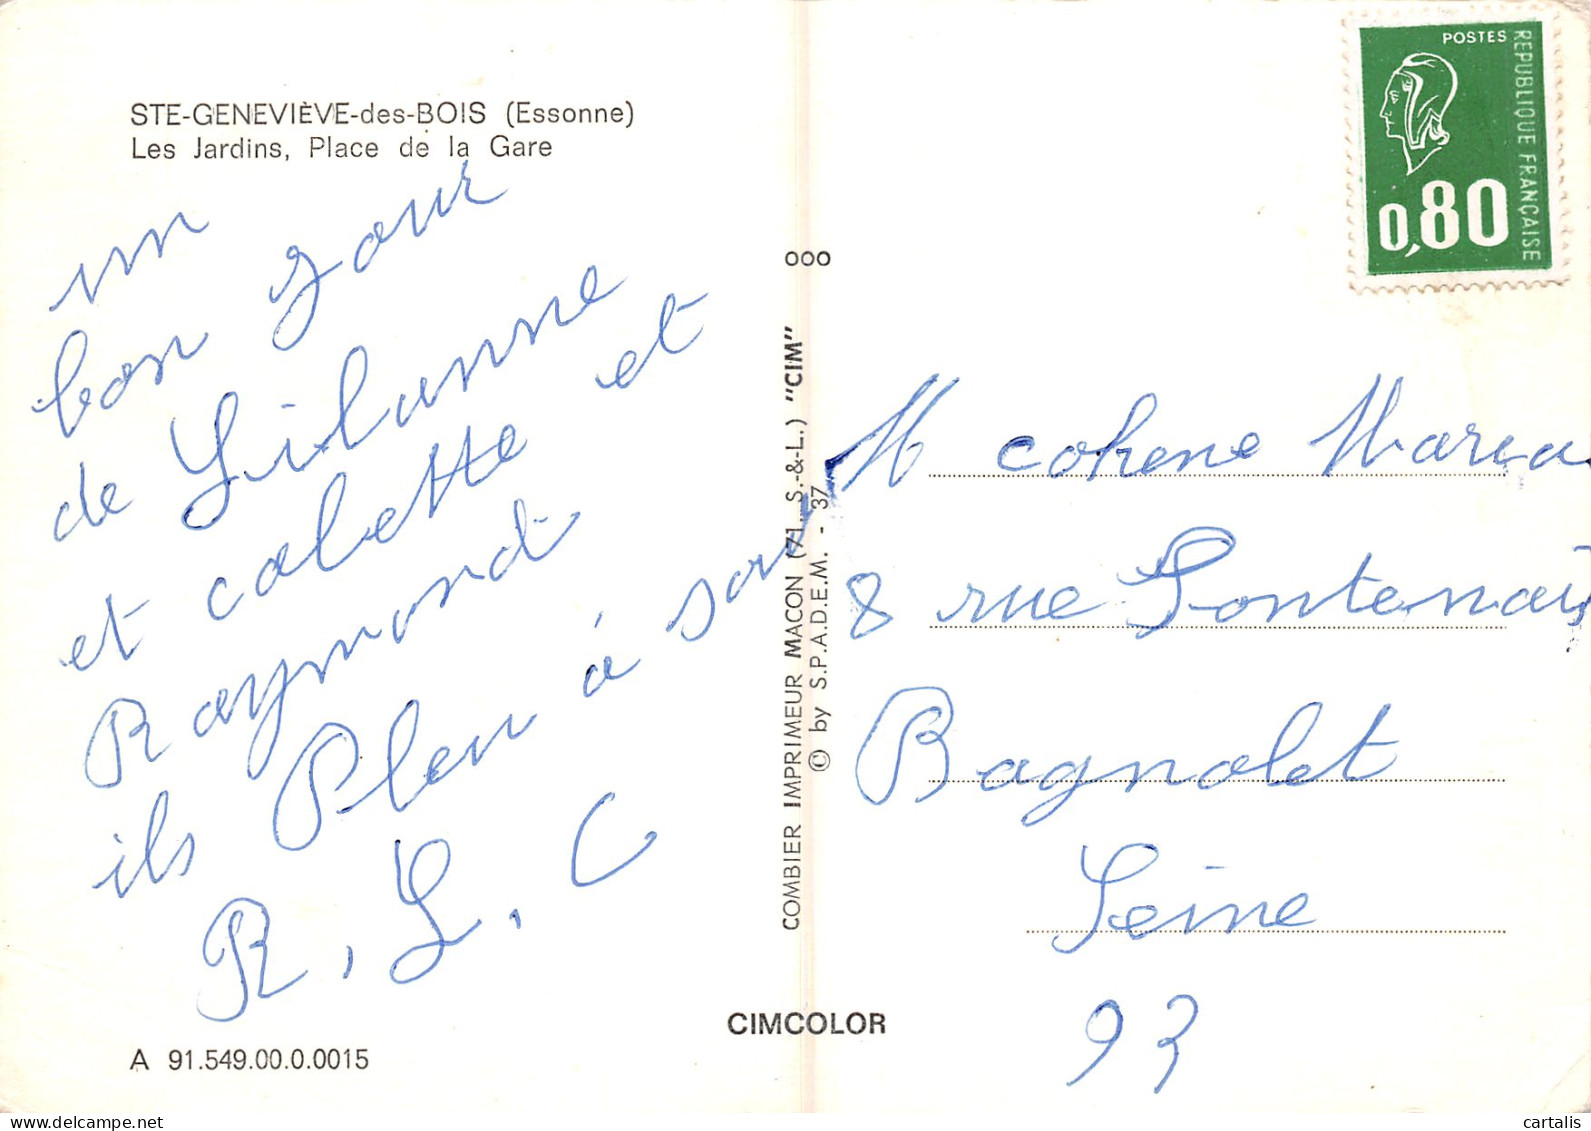 STE-GENEVIÈVE-des-BOIS (Essonne)
Les Jardins, Place de la Gare
un
bon jour
de Lilianne
et colette et
Raymond
ils Pleu à sou
R, L, C
A 91.549.00.0.0015
COMBIER IMPRIMEUR MACON (71. S.-&-L.) "CIM"
© by S.P.A.D.E.M. - 37
000
CIMCOLOR
POSTES
REPUBLIQUE FRANÇAISE
0,80
M cohene
8 rue
Bagnolet
Seine
93
cartalis